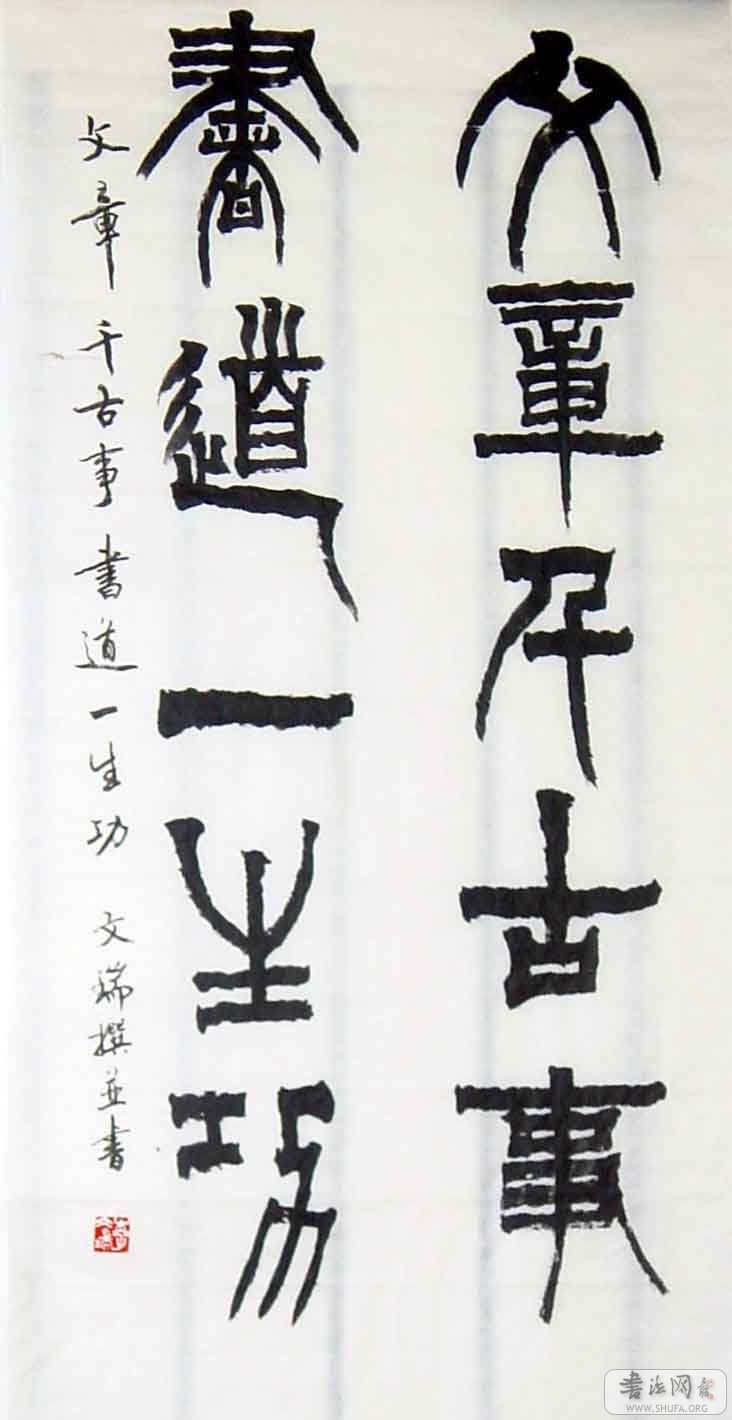 文章千古事
書道一生功
文章千古事 书道一生功 文瑞撰並书
书法网
WWW.SHUFA.ORG